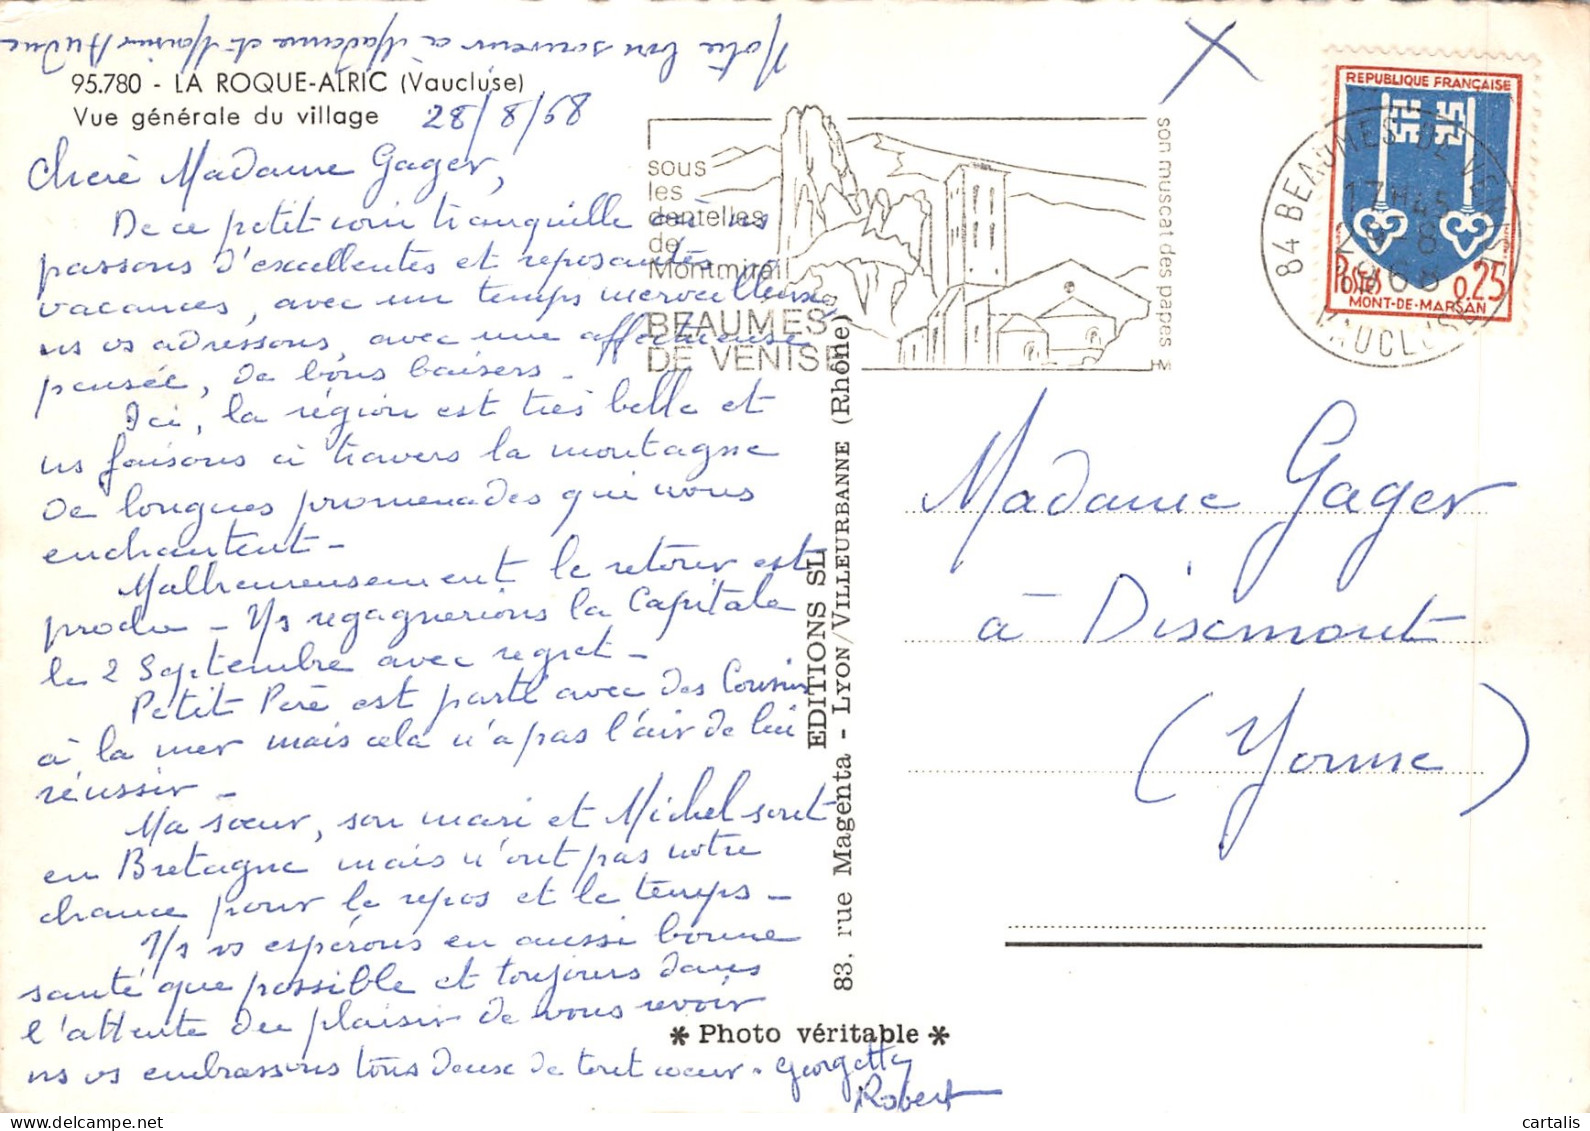 Notre bon souvenir à Madame et Monsieur
95.780 - LA ROQUE-ALRIC (Vaucluse)
Vue générale du village
28/8/68
Chère Madame Gager,
De ce petit coin tranquille où ns
passons d'excellentes et reposantes
vacances, avec un temps merveilleux,
ns vs adressons, avec une affectueuse
pensée, de bons baisers -
Ici, la région est très belle et
ns faisons à travers la montagne
de longues promenades qui nous
enchantent -
Malheureusement le retour est
proche - Ns regagnerions la Capitale
le 2 Septembre avec regret -
Petit Père est parti avec des Cousins
à la mer mais cela n'a pas l'air de lui
réussir -
Ma sœur, son mari et Michel sont
en Bretagne mais n'ont pas notre
chance pour le repos et le temps -
Ns vs espérons en aussi bonne
santé que possible et toujours dans
l'attente du plaisir de vous revoir
ns vs embrassons tous deux de tout cœur - Georgette
Robert
sous
les
dentelles
de
Montmirail
BEAUMES
DE VENISE
son muscat des papes
HM
84 BEAUMES DE VENISE
17H45
28-8
1968
VAUCLUSE
REPUBLIQUE FRANÇAISE
Postes 0,25
MONT-DE-MARSAN
EDITIONS SL
83, rue Magenta - LYON/VILLEURBANNE (Rhône)
Madame Gager
à Dixmont
(Yonne)
* Photo véritable *
cartalis
www.delcampe.net